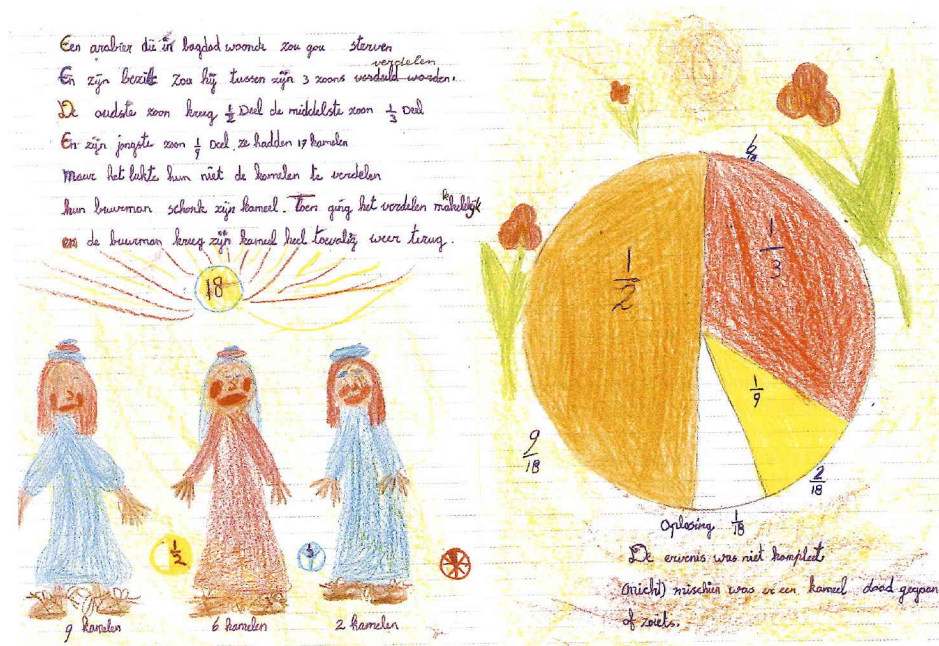 Een arabier die in bagdad woonde zou gou sterven
En zijn bezitt zou hij tussen zijn 3 zoons verdeeld worden. verdelen
De oudste zoon kreeg 1/2 Deel de middelste zoon 1/3 Deel
En zijn jongste zoon 1/9 Deel. ze hadden 17 kamelen
maar het lukte hun niet de kamelen te verdelen
hun buurman schonk zijn kameel. Toen ging het verdelen makelijk
en de buurman kreeg zijn kameel heel toevalig weer terug.
18
1/2
3
9 kamelen
6 kamelen
2 kamelen
6/18
1/2
1/3
1/9
9/18
2/18
Oplosing 1/18
De ervenis was niet kompleet
(nicht) mischien was er een kameel dood gegaan
of zoiets.